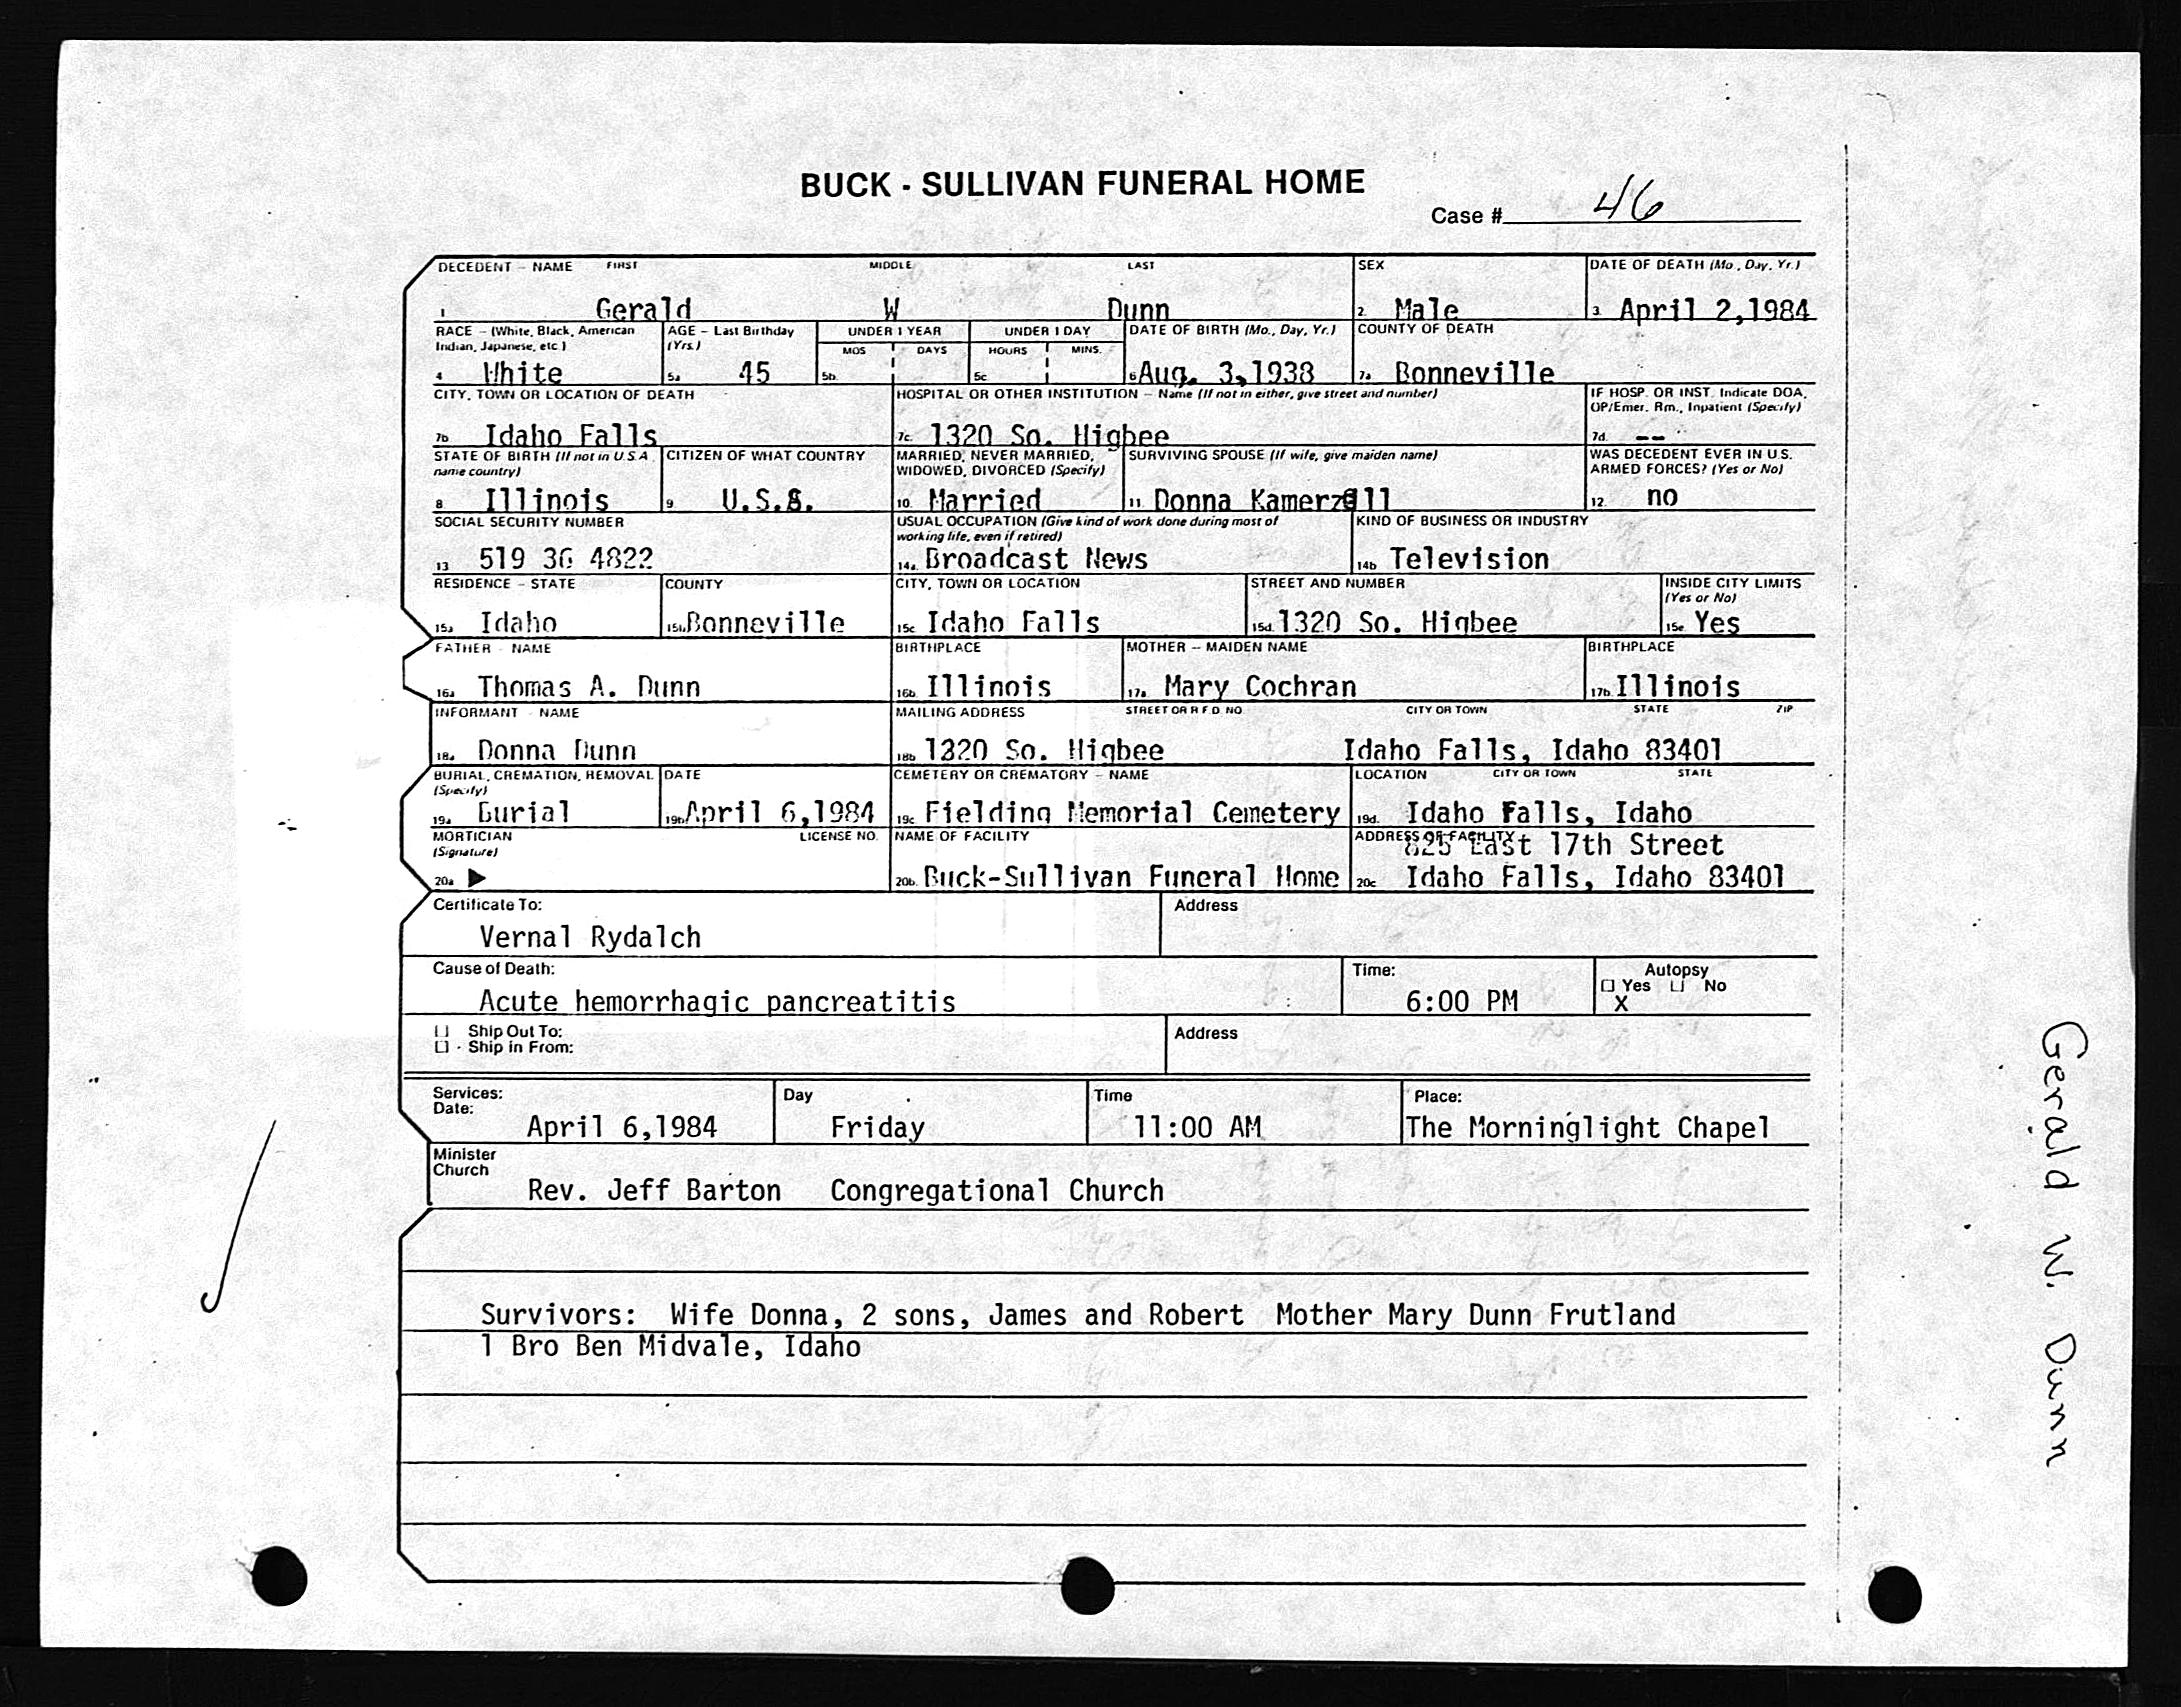 BUCK - SULLIVAN FUNERAL HOME
Case # 46
DECEDENT - NAME FIRST MIDDLE LAST SEX DATE OF DEATH (Mo., Day, Yr.)
1 Gerald W Dunn 2. Male 3. April 2,1984
RACE - (White, Black, American Indian, Japanese, etc.) AGE - Last Birthday (Yrs.) UNDER 1 YEAR UNDER 1 DAY DATE OF BIRTH (Mo., Day, Yr.) COUNTY OF DEATH
MOS DAYS HOURS MINS.
4 White 5a 45 5b. 5c 6 Aug. 3,1938 7a. Bonneville
CITY, TOWN OR LOCATION OF DEATH HOSPITAL OR OTHER INSTITUTION - Name (If not in either, give street and number) IF HOSP. OR INST. Indicate DOA, OP/Emer. Rm., Inpatient (Specify)
7b Idaho Falls 7c. 1320 So. Higbee 7d. --
STATE OF BIRTH (If not in U.S.A. name country) CITIZEN OF WHAT COUNTRY MARRIED, NEVER MARRIED, WIDOWED, DIVORCED (Specify) SURVIVING SPOUSE (If wife, give maiden name) WAS DECEDENT EVER IN U.S. ARMED FORCES? (Yes or No)
8. Illinois 9 U.S.A. 10. Married 11. Donna Kamerzell 12. no
SOCIAL SECURITY NUMBER USUAL OCCUPATION (Give kind of work done during most of working life, even if retired) KIND OF BUSINESS OR INDUSTRY
13 519 36 4822 14a. Broadcast News 14b Television
RESIDENCE - STATE COUNTY CITY, TOWN OR LOCATION STREET AND NUMBER INSIDE CITY LIMITS (Yes or No)
15a Idaho 15b Bonneville 15c Idaho Falls 15d. 1320 So. Higbee 15e. Yes
FATHER - NAME BIRTHPLACE MOTHER - MAIDEN NAME BIRTHPLACE
16a Thomas A. Dunn 16b. Illinois 17a. Mary Cochran 17b. Illinois
INFORMANT - NAME MAILING ADDRESS STREET OR R.F.D. NO. CITY OR TOWN STATE ZIP
18a Donna Dunn 18b 1320 So. Higbee Idaho Falls, Idaho 83401
BURIAL, CREMATION, REMOVAL (Specify) DATE CEMETERY OR CREMATORY - NAME LOCATION CITY OR TOWN STATE
19a Burial 19b April 6,1984 19c Fielding Memorial Cemetery 19d. Idaho Falls, Idaho
MORTICIAN (Signature) LICENSE NO. NAME OF FACILITY ADDRESS OF FACILITY
825 East 17th Street
20a 20b. Buck-Sullivan Funeral Home 20c Idaho Falls, Idaho 83401
Certificate To: Address
Vernal Rydalch
Cause of Death: Time: Autopsy
Yes No
Acute hemorrhagic pancreatitis 6:00 PM X
Ship Out To: Address
Ship in From:
Services: Day Time Place:
Date:
April 6,1984 Friday 11:00 AM The Morninglight Chapel
Minister
Church
Rev. Jeff Barton Congregational Church
Survivors: Wife Donna, 2 sons, James and Robert Mother Mary Dunn Frutland
1 Bro Ben Midvale, Idaho
Gerald W. Dunn